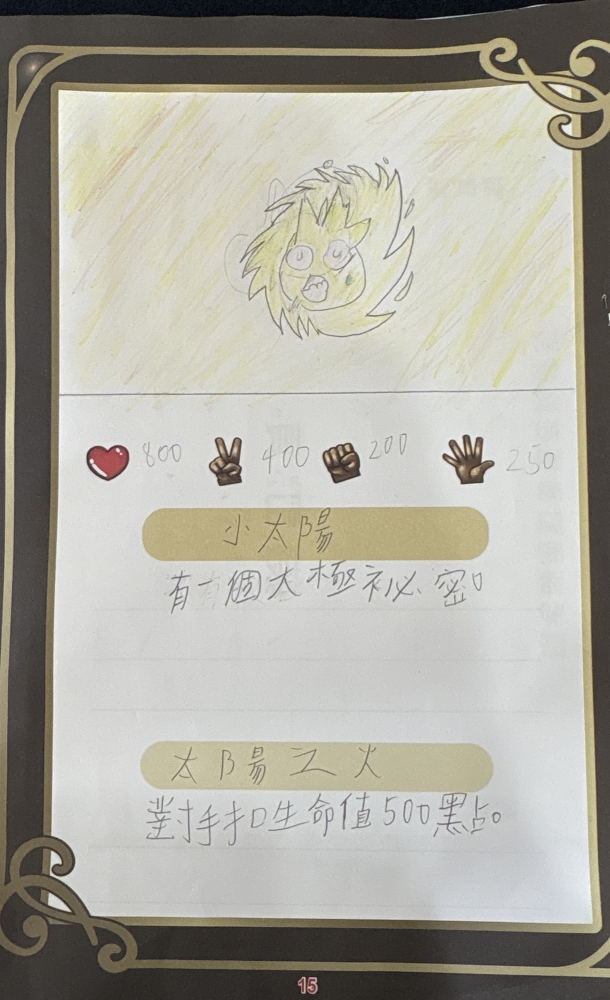 800 400 200 250
小太陽
有一個太極祕密。
太陽之火
對手扣生命值500點。
15